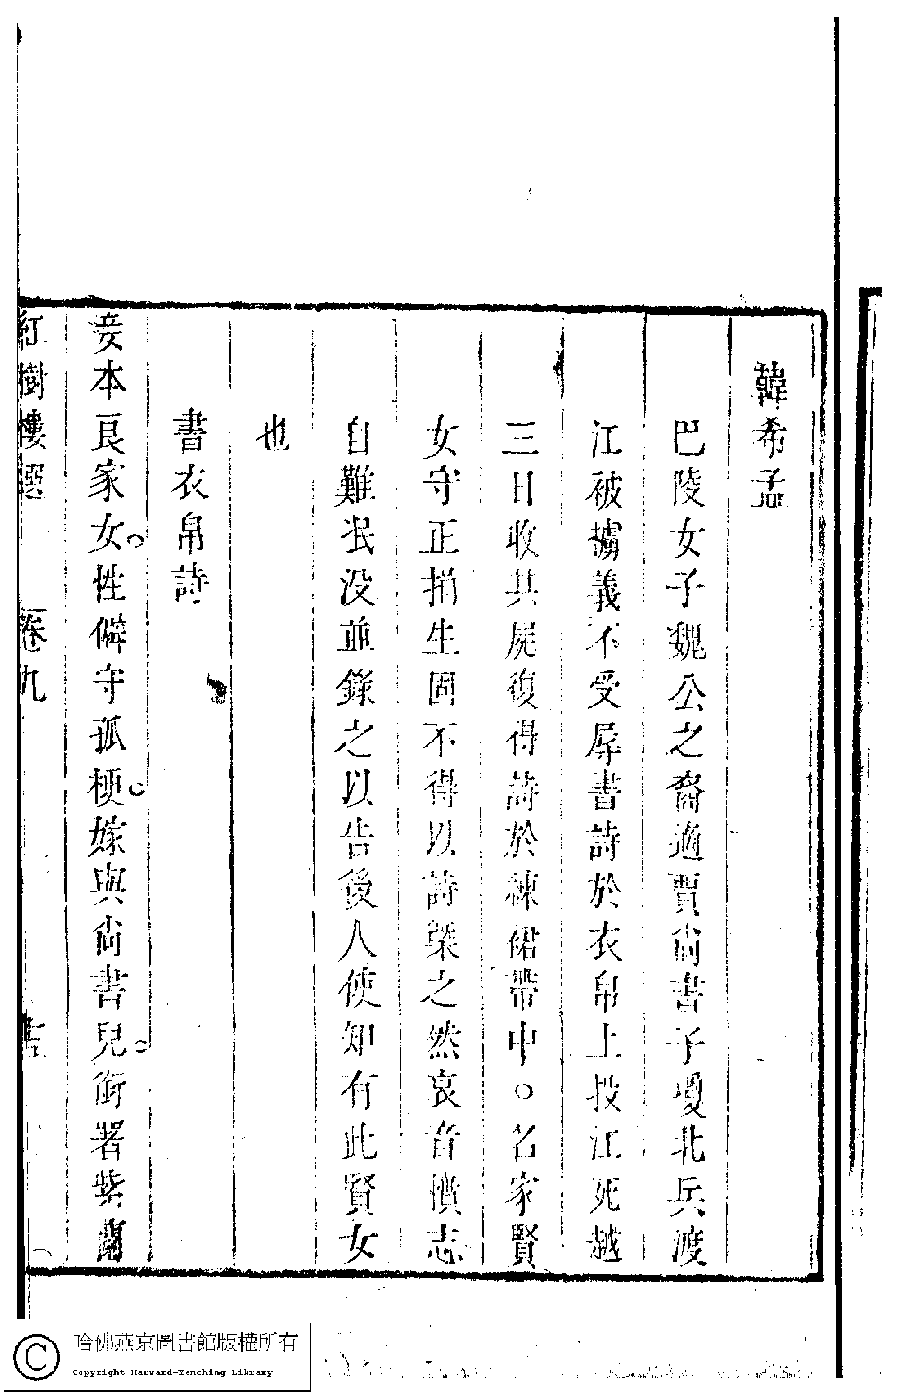 韓希孟
巴陵女子魏公之裔適賈尚書子瓊北兵渡
江被擄義不受辱書詩於衣帛上投江死越
三日收其屍復得詩於練裙帶中○名家賢
女守正捐生固不得以詩槩之然哀音憤志
自難泯没並錄之以告後人使知有此賢女
也
書衣帛詩
妾本良家女性僻守孤梗嫁與尚書兒銜署紫蘭
紅樹樓選 卷九
哈佛燕京圖書館版權所有
Copyright Harvard-Yenching Library